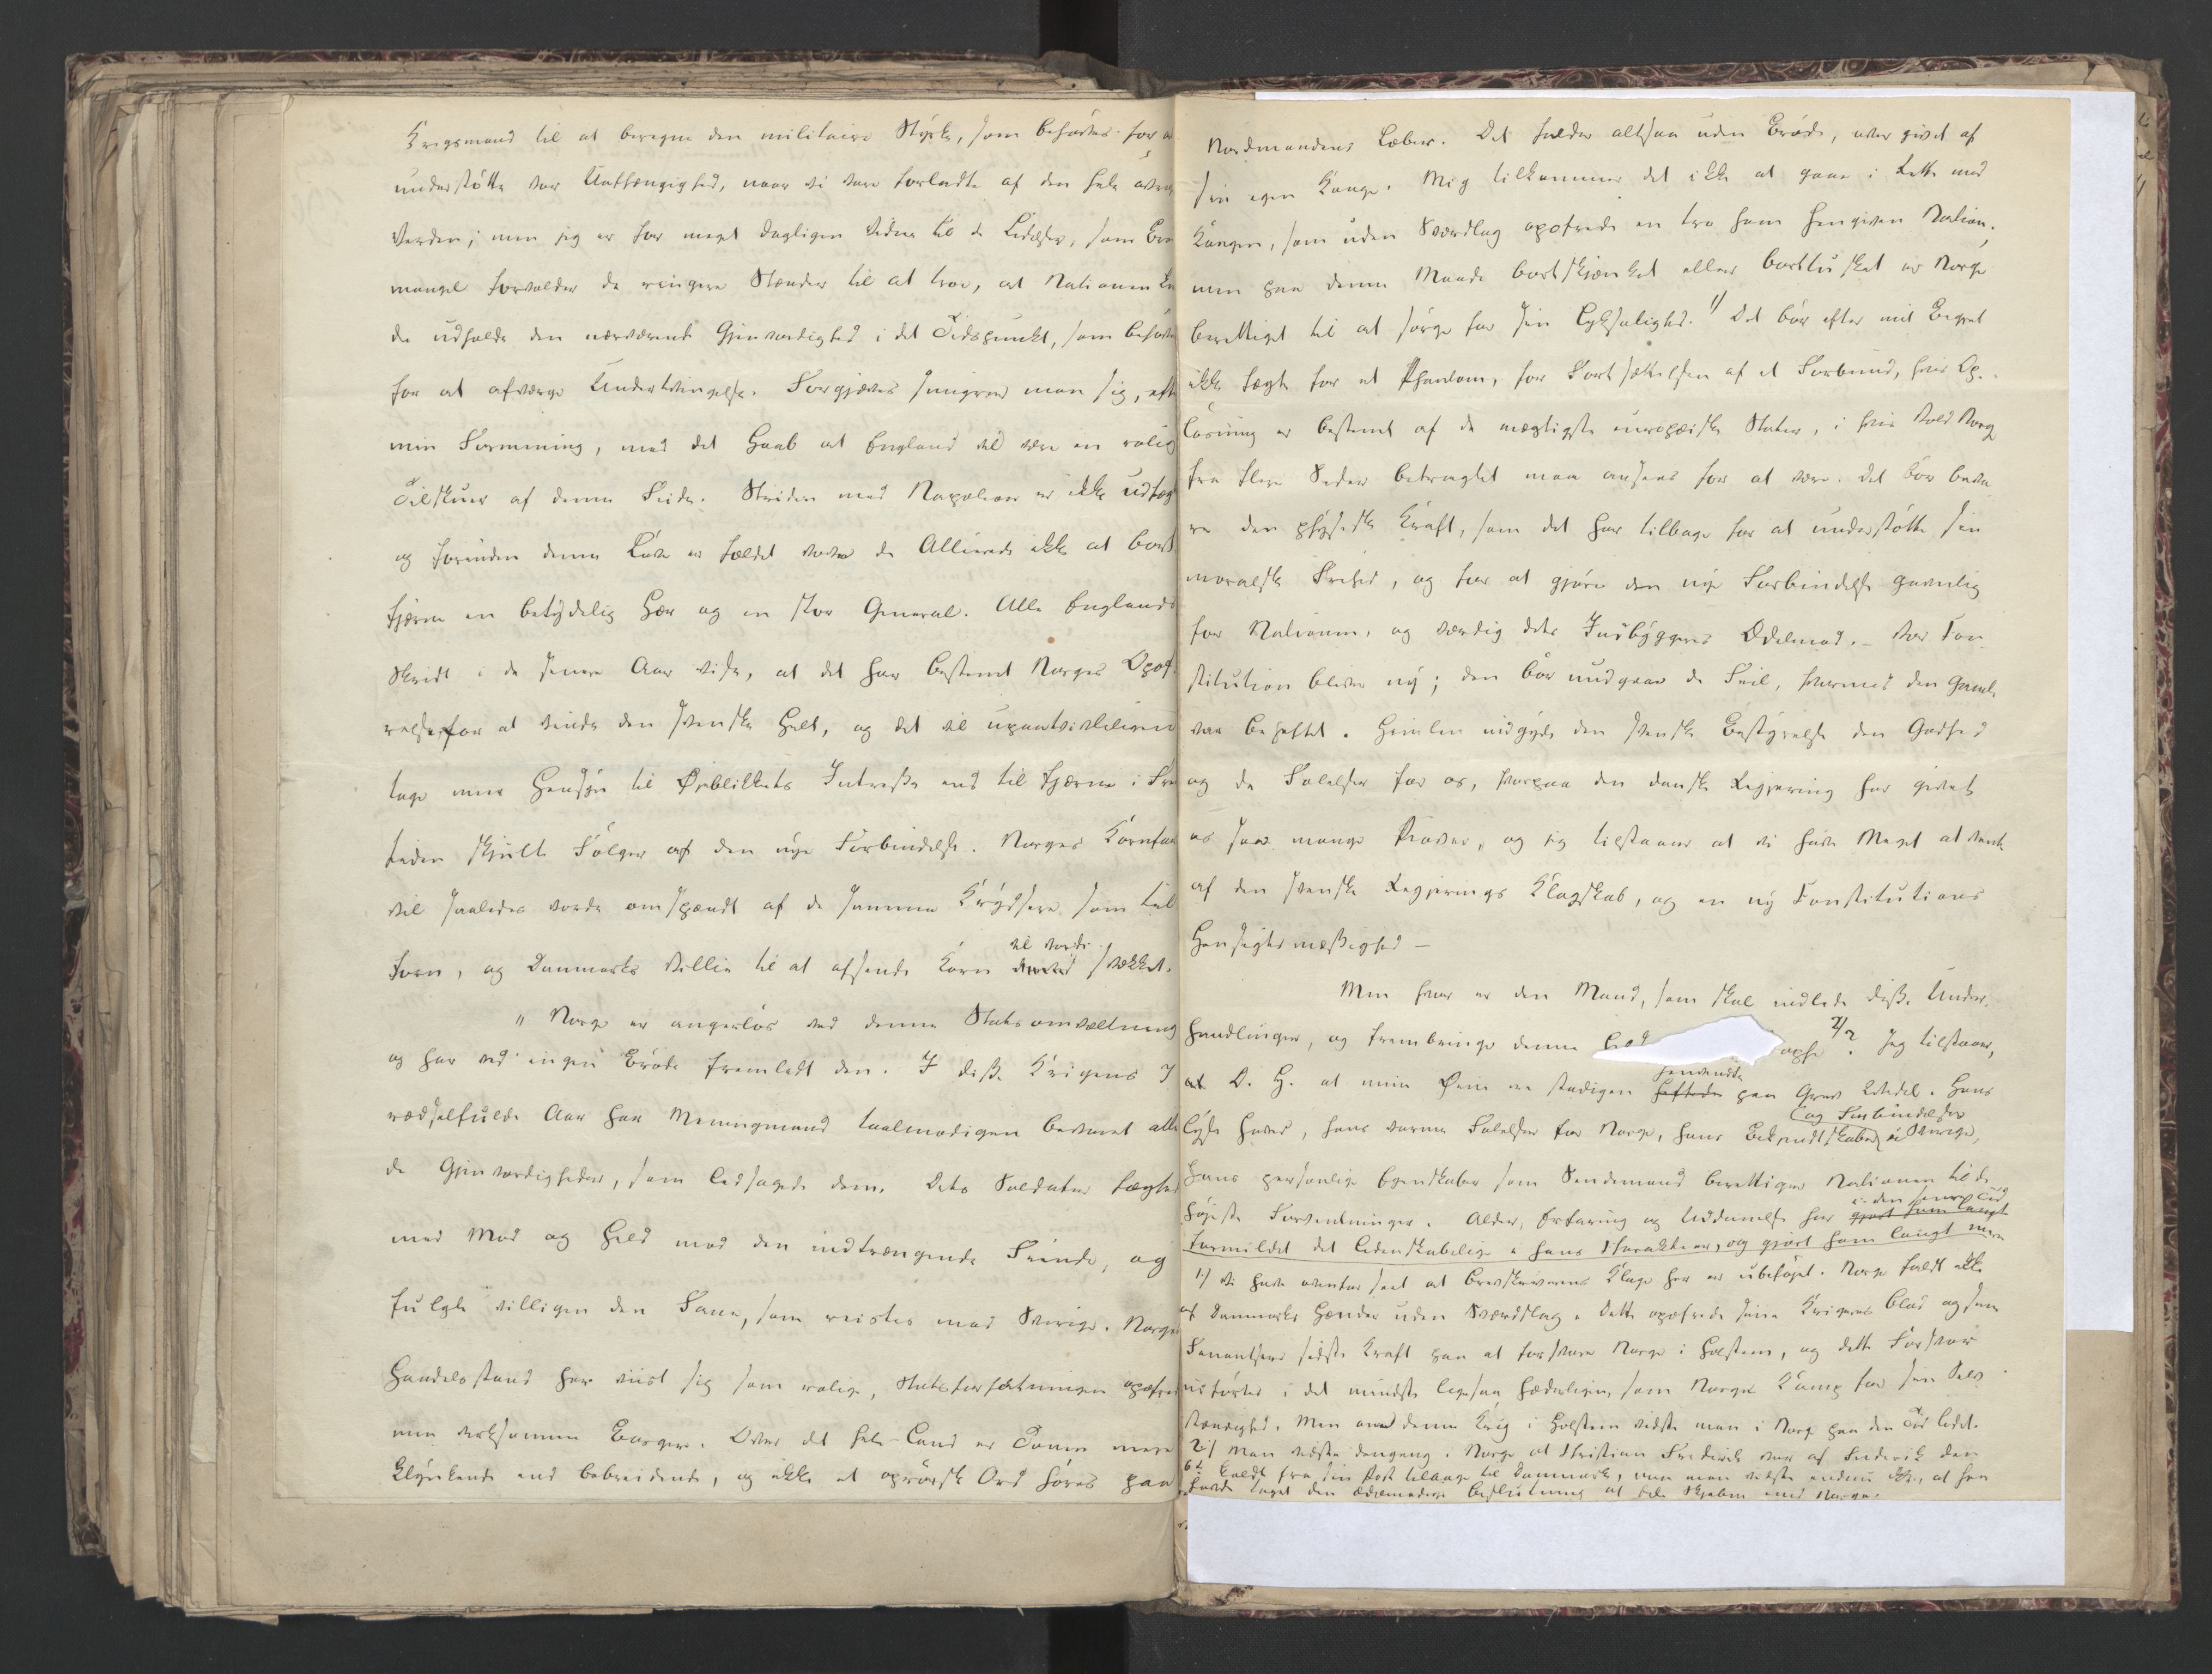 Krigsmand til at beregne den militaire Styrke, som behøves for at
understøtte vor Uafhængighed, naar vi vare forladte af den hele øvrige
Verden; men jeg er for meget dagligen Vidne til de Lidelser, som Brød
mangel forvolder de ringere Stænder til at troe, at Nationen kun
de udholde den nærværende Gjenvordighed i det Tidspunkt, som behøves
for at afværge Undertvingelse. Forgjæves smigrer man sig, efter
min Formening, med det Haab at England vil være en rolig
Tilskuer af denne Feide. Striden med Napoleon er ikke udfægt
og forinden denne Løve er fældet vover de Allierede ikke at bort
fjerne en betydelig Hær og en stor General. Alle Englands
Skridt i de senere Aar vise, at det har bestemt Norges Opof-
relse for at vinde den svenske Helt, og det vil upaatvivleligen
tage mere Hensyn til Øieblikkets Interesse end til fjerne i Frem
tiden skjulte Følger af den nye Forbindelse. Norges Kornfart
vil saaledes vorde omspændt af de samme Krydsere som til
vil vorde
forn, og Danmarks Villie til at afsende Korn svækket.
" Norge er angerløs ved denne Statsomvæltning
og har ved ingen Brøde fremledt den. I disse Krigens 7
rædselfulde Aar har Menigmand taalmodigen bevaret alle
de Gjenvordigheder, som ledsagede dem. Dets Soldater fægted
med Mod og Held mod den indtrængende Fiende, og
fulgte villigen den Fane, som reistes mod Sverige. Norges
Handelsstand har viist sig som rolige, Statsforfatningen opofrende
men virksomme Borgere. Over det hele Land er Tonen mere
klynkende end bebreidende, og ikke et oprørsk Ord høres paa
Nordmandens Læber. Det falder altsaa uden Brøde, overgivet af
sin egen Konge. Mig tilkommer det ikke at gaae i Rette med
Kongen, som uden Sværdslag opofrede en tro ham hengiven Nation;
men paa denne Maade bortskjænket eller borttusket er Norge
berettiget til at sørge for sin Lyksalighed. 1) Det bør efter mit Begreb
ikke fægte for et Phantom, for Fortsættelsen af et Forbund, hvis Op-
løsning er bestemt af de mægtigste europæiske Stater, i hvis Vold Norge
fra flere Sider betragtet maa ansees for at være. Det bør beva
re den physiske Kraft, som det har tilbage for at understøtte sin
moralske Frihed, og for at gjøre den nye Forbindelse gavnlig
for Nationen, og værdig dets Indbyggeres Ædelmod. - Vor Con
stitution bliver ny; den bør undgaae de Feil, hvormed den gamle
var beheftet. Himlen indgyde den svenske Bestyrelse den Godhed
og de Følelser for os, hvorpaa den danske Regjering har givet
os saa mange Prøver, og jeg tilstaaer at vi have Meget at vente
af den svenske Regjerings Klogskab, og en ny Constitutions
Hensigtsmæssighed -
Men hvor er den Mand, som skal indlede disse Under-
handlinger, og frembringe denne 2)? Jeg tilstaaer,
henvendte
D. H. at mine Øine ere stadigen heftede paa Grev Wedel. Hans
lyse Hoved, hans varme Følelser for Norge, hans Bekjendtskaber i Sverige,
og Forbindelser
hans personlige Egenskaber som Sendemand berettiger Nationen til de
højeste Forventninger. Alder, Erfaring og Uddannelse har gjort ham langt
i den senere Tid
formildet det lidenskabelige i hans Charakteer, og gjort ham langt mere
1) Vi have ovenfor seet at Brevskriverens Klage her er ubeføjet. Norge faldt ikke
af Danmarks Hænder uden Sværdslag. Dette opofrede sine Krigeres Blod og sine
Finantsers sidste Kraft paa at forsvare Norge i Holsteen, og dette Forsvar
udførtes i det mindste ligesaa hæderligen, som Norges Kamp for sin Selv
stændighed. Men om denne Krig i Holsteen vidste man i Norge paa den Tid lidet.
2) Man vidste dengang i Norge at Christian Frederik var af Frederik den
6te kaldt fra sin Post tilbage til Danmark, men man vidste endnu ikke, at han
havde taget den ædelmodige Beslutning at dele Skjebne med Norge.